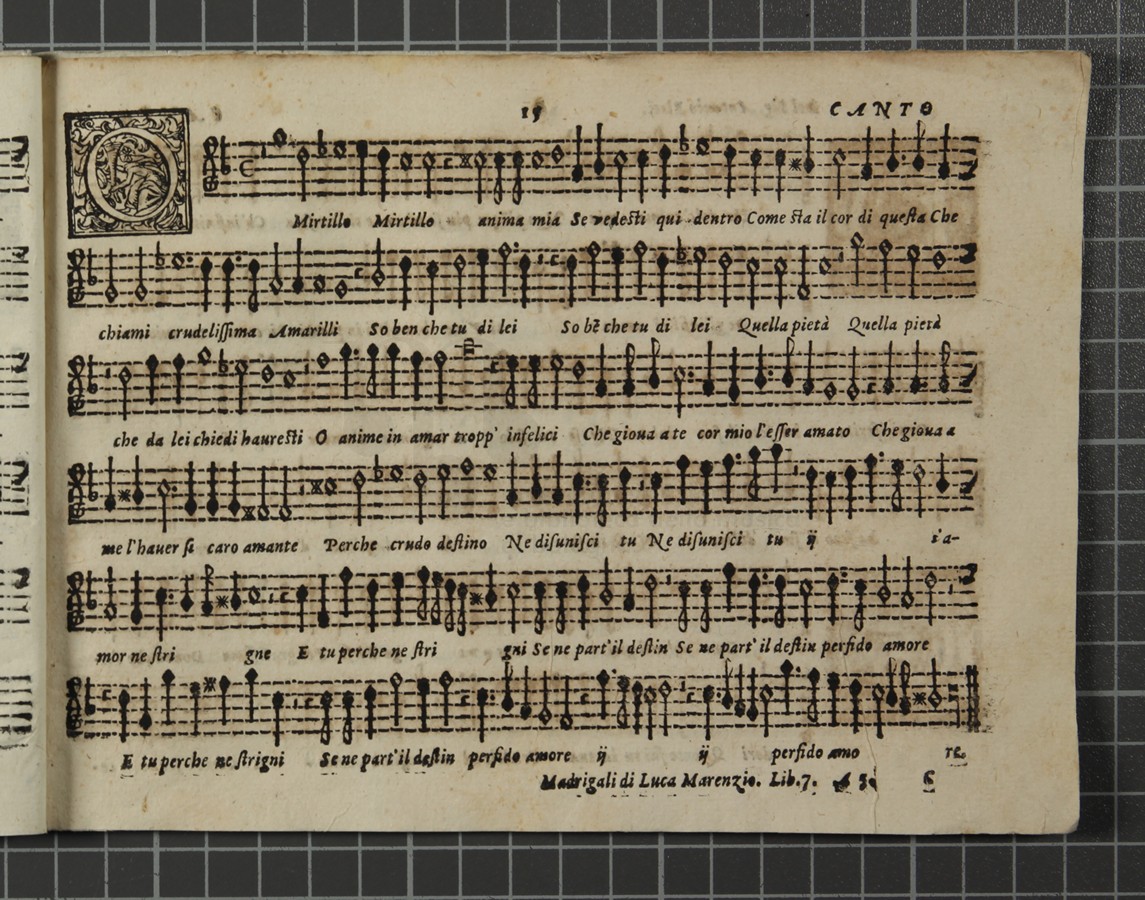 15 CANTO
O Mirtillo Mirtillo anima mia Se vedesti qui dentro Come sta il cor di questa Che
chiami crudelissima Amarilli So ben che tu di lei So bẽ che tu di lei Quella pietà Quella pietà
che da lei chiedi hauresti O anime in amar tropp' infelici Che gioua a te cor mio l'esser amato Che gioua a
me l'hauer si caro amante Perche crudo destino Ne disunisci tu Ne disunisci tu ij s'a-
mor ne stri gne E tu perche ne stri gni Se ne part' il destin Se ne part' il destin perfido amore
E tu perche ne strigni Se ne part' il destin perfido amore ij ij perfido amo re.
Madrigali di Luca Marenzio. Lib.7. A 5. C